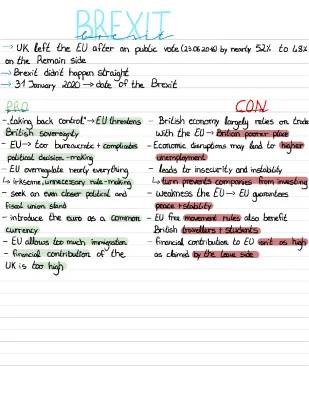 BREXIT
brexit
→ UK left the EU after an public vote (23.06.2016) by nearly 52% to 48%
on the Remain side
→ Brexit didn't happen straight
→ 31 January 2020 → date of the Brexit
PRO
- "taking back control" → EU threatens
British sovereignty
- EU → too bureaucratic + complicates
political decision-making
- EU overregulate nearly everything
↳ irksome, unnecessary rule-making
- seek an even closer political and
fiscal union stand
- introduce the euro as a common
currency
- EU allows too much immigration
- financial contribution of the
UK is too high
CON
- British economy largely relies on trade
with the EU → Britain poorer place
- Economic disruptions may lead to higher
unemployment
- leads to insecurity and instability
↳ turn prevents companies from investing
- weakness the EU → EU guarantees
peace + stability
- EU free movement rules also benefit
British travellers + students
- financial contribution to EU isn't as high
as claimed by the leave side